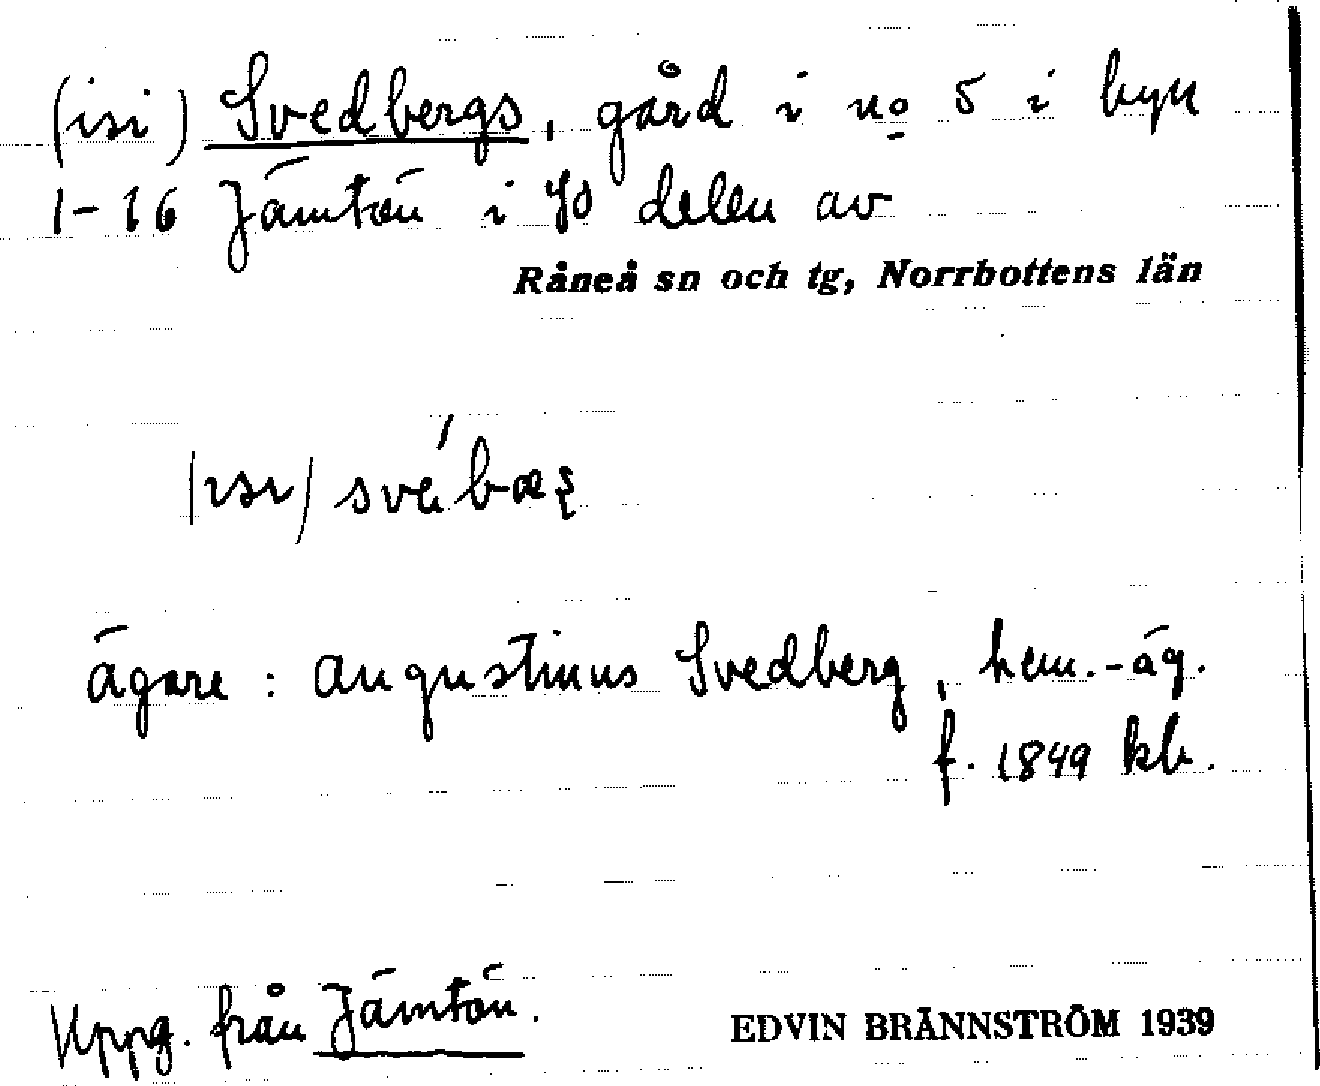 (isi) Svedbergs, gård i no 5 i byn
1-16 Jämtön i SO delen av
Råneå sn och tg, Norrbottens län
/ɪsɪ/
ägare: Augustinus Svedberg, hem.-äg.
f. 1849 kb.
Uppg. från Jämtön.
EDVIN BRÄNNSTRÖM 1939